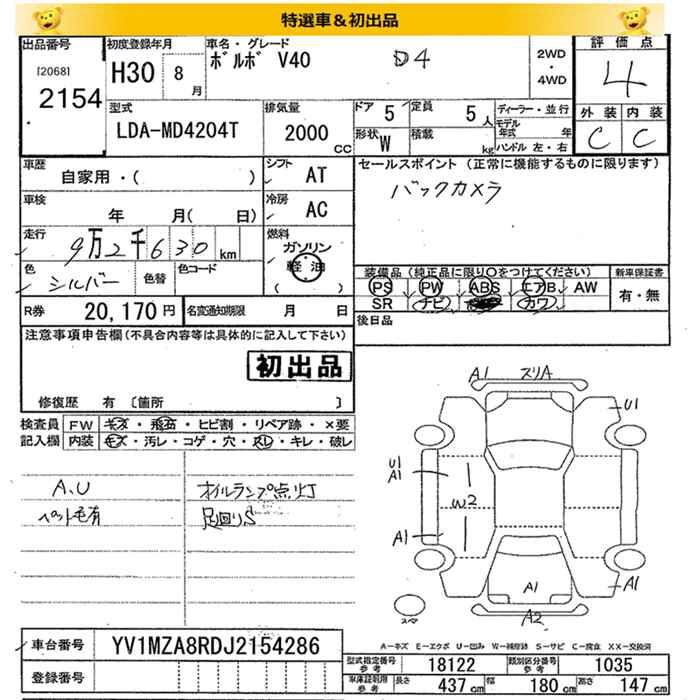 特選車&初出品
出品番号 初度登録年月 車名・グレード 評価点
[2068]
2154 H30 8月 ボルボ V40 D4 2WD・4WD 4
型式 排気量 ドア 定員 ディーラー・並行 外装 内装
LDA-MD4204T 2000cc 5 5人 モデル年式 年 C C
形状 W 積載 kg ハンドル 左・右
車歴 シフト セールスポイント (正常に機能するものに限ります)
自家用・( ) AT バックカメラ
車検 冷房
年 月( 日) AC
走行 燃料
9万2千630km ガソリン
軽油
( )
色 色替 色コード
シルバー
装備品 (純正品に限り○をつけてください) 新車保証書
PS PW ABS エアB AW 有・無
SR ナビ カワ
R券 20,170円 名変通知期限 月 日
後日品
注意事項申告欄(不具合内容等は具体的に記入して下さい)
初出品
修復歴 有 [箇所 ]
検査員 FW キズ・飛石・ヒビ割・リペア跡・×要
記入欄 内装 キズ・汚レ・コゲ・穴・スレ・キレ・破レ
A.U オイルランプ点灯
ペット毛有 足回りS
A1 スリA
U1
U1
A1
W2
A1
A1
A1
A2
スマ
A-キズ E-エクボ U-凹み W-補修跡 S-サビ C-腐食 XX-交換済
車台番号 YV1MZA8RDJ2154286
型式指定番号 参考 18122 類別区分番号 参考 1035
登録番号
車庫証明用 参考 長さ 437cm 幅 180cm 高さ 147cm